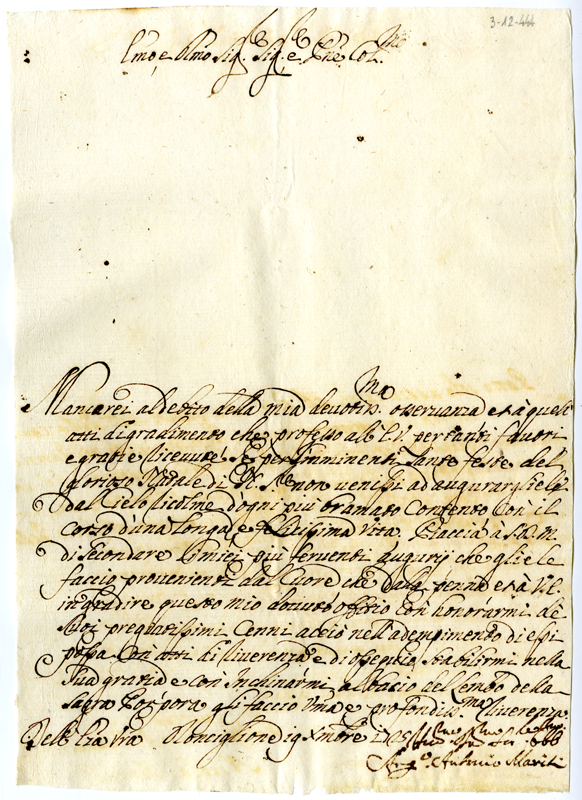 3-12-444
Em͞o, e R͞mo Sig.r Sig.r e P͞ne Col.mo
Mancarei al debito della mia devotiss.ma osservanza et à quelli
atti di gradimento che professo all' E.V. per tanti favori
e gratie ricevute, se per l'imminenti Sante feste del
Glorioso Natale di non venissi ad augurargliele
dal Cielo ricolme d'ogni più bramato contento con il
corso d'una longa e felicissima Vita. Piaccia à S.D.M.
di secondare l'miei più ferventi augurij che gliele
faccio provenienti dal Cuore che dalla penna et à V.E.
in gradire questo mio dovuto offitio con honorarmi de
suoi pregiatissimi Cenni acciò nell'adempimento di essi
possa con atti di riverenza e di ossequio stabilirmi nella
sua gratia e con inchinarmi al bacio del lembo della
sagra Porpora gli faccio Um.a e profondiss.ma riverenza.
Dell' Em͞a V͞ra Ronciglione 19 Xmbre
Ang.o Antonio Mariti